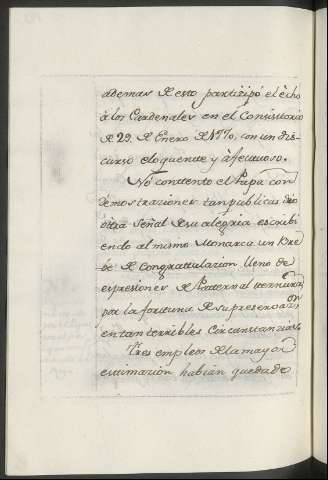 ademas de esto partizipó el ècho
à los Cardenales en el Consistorio
de 29. de Enero de 1770, con un dis-
curso eloquente y àfectuoso.
No contento el Papa con
demostraziones tan publicas dio
òtra Señal de su alegria escribi
endo al mismo Monarca un Bre
be de Congratulazion lleno de
expresiones de Paternal ternura
por la fortuna de su preservazion
en tan terribles Circunstanzias.
Tres empleos de la mayor
estimazion habian quedado